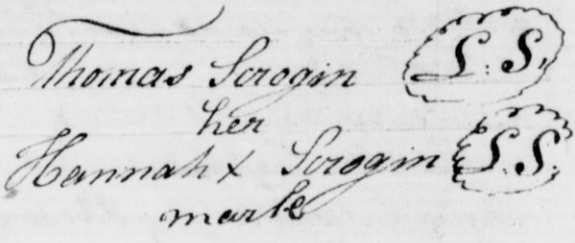 Thomas Scrogin L. S.
her
Hannah x Scrogin L. S.
mark